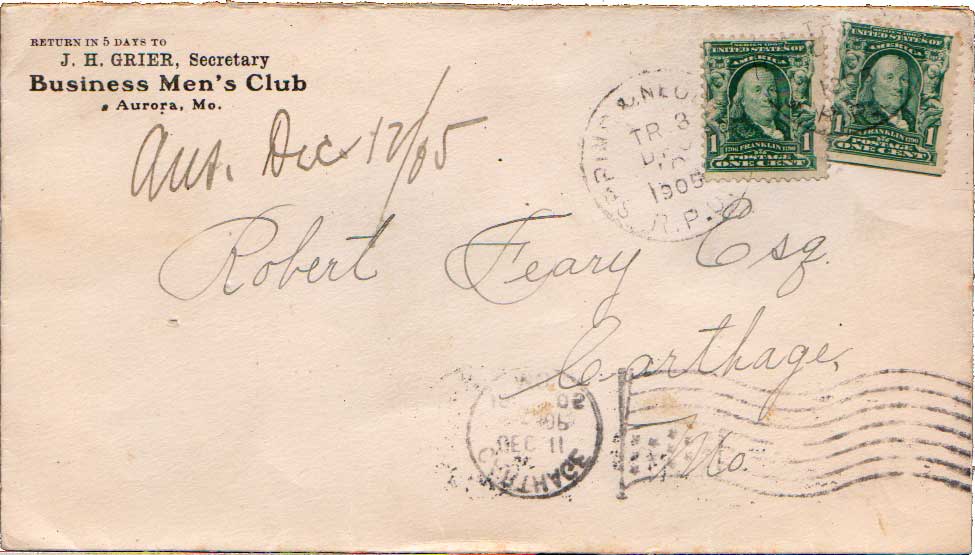 RETURN IN 5 DAYS TO
J. H. GRIER, Secretary
Business Men's Club
Aurora, Mo.
Ans. Dec 12/05
SERIES 1902
UNITED STATES OF
AMERICA
1 FRANKLIN 1
POSTAGE
ONE CENT
UNITED STATES OF
AMERICA
1 FRANKLIN 1
POSTAGE
ONE CENT
TR 3
1905
R.P.O.
Robert Feary Esq.
Carthage,
Mo.
DEC 11